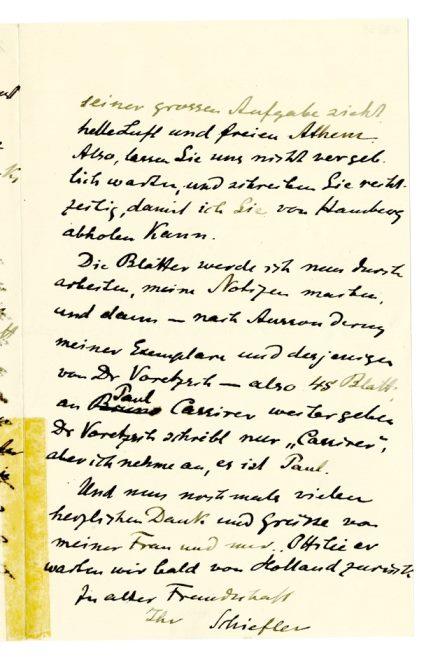 seiner grossen Aufgabe zieht
helle Luft und freien Athem.
Also, lassen Sie uns nicht vergeb-
lich warten, und schreiben Sie recht-
zeitig, damit ich Sie von Hamburg
abholen kann.
Die Blätter werde ich nun durch
arbeiten, meine Notizen machen,
und dann – nach Aussonderung
meiner Exemplare und derjenigen
von Dr Voretzsch – also 45 Blatt,
an Paul Cassirer weitergeben
Dr Voretzsch schreibt nur „Cassirer“,
aber ich nehme an, es ist Paul.
Und nun nochmals vielen
herzlichen Dank und Grüsse von
meiner Frau und mir. Ottilie er
warten wir bald von Holland zurück.
In alter Freundschaft
Ihr Schiefler